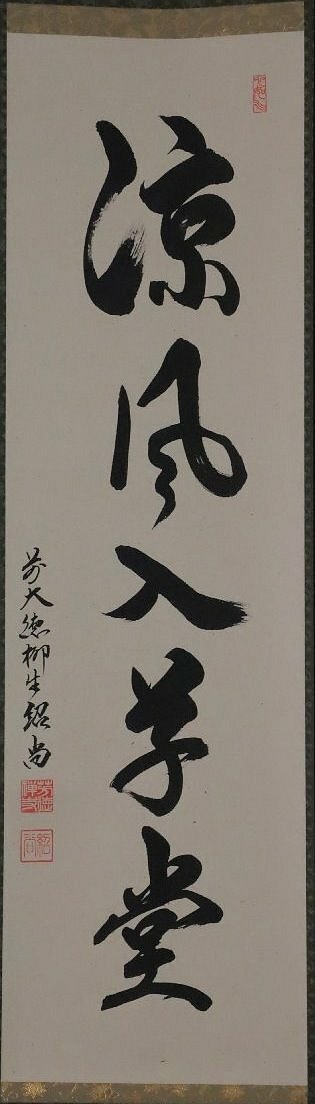 涼風入草堂
前大徳柳生紹尚